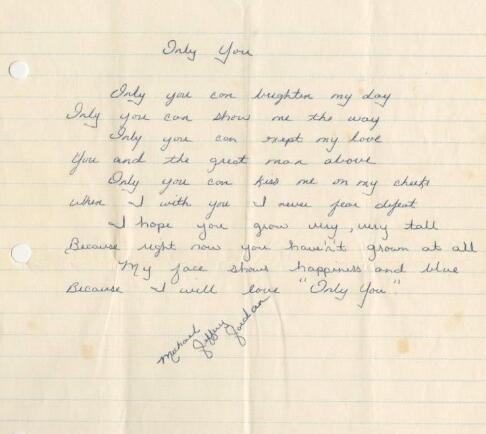 Only You
Only you can brighten my day
Only you can show me the way
Only you can exept my love
You and the great man above
Only you can kiss me on my cheek
When I with you I never fear defeat
I hope you grow very, very tall
Because right now you haven't grown at all
My face shows happiness and blue
Because I will love "Only You"
Michael
Jeffrey
Jordan